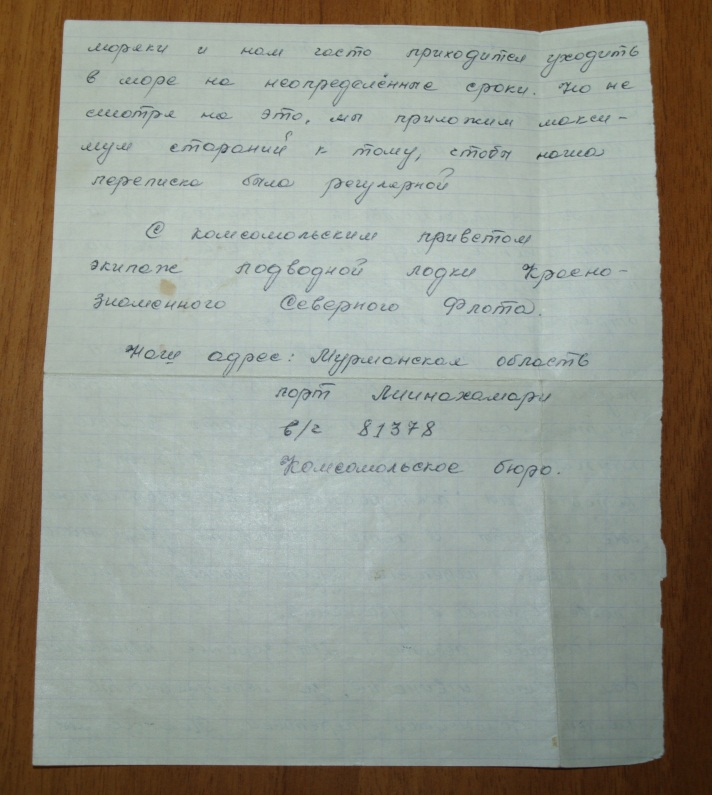 моряки и нам часто приходится уходить
в море на неопределённые сроки. Но не
смотря на это, мы приложим макси-
мум стараний к тому, чтобы наша
переписка была регулярной
С комсомольским приветом
экипаж подводной лодки Красно-
знаменного Северного Флота.
Наш адрес: Мурманская область
порт Лиинахамари
в/ч 81378
Комсомольское бюро.